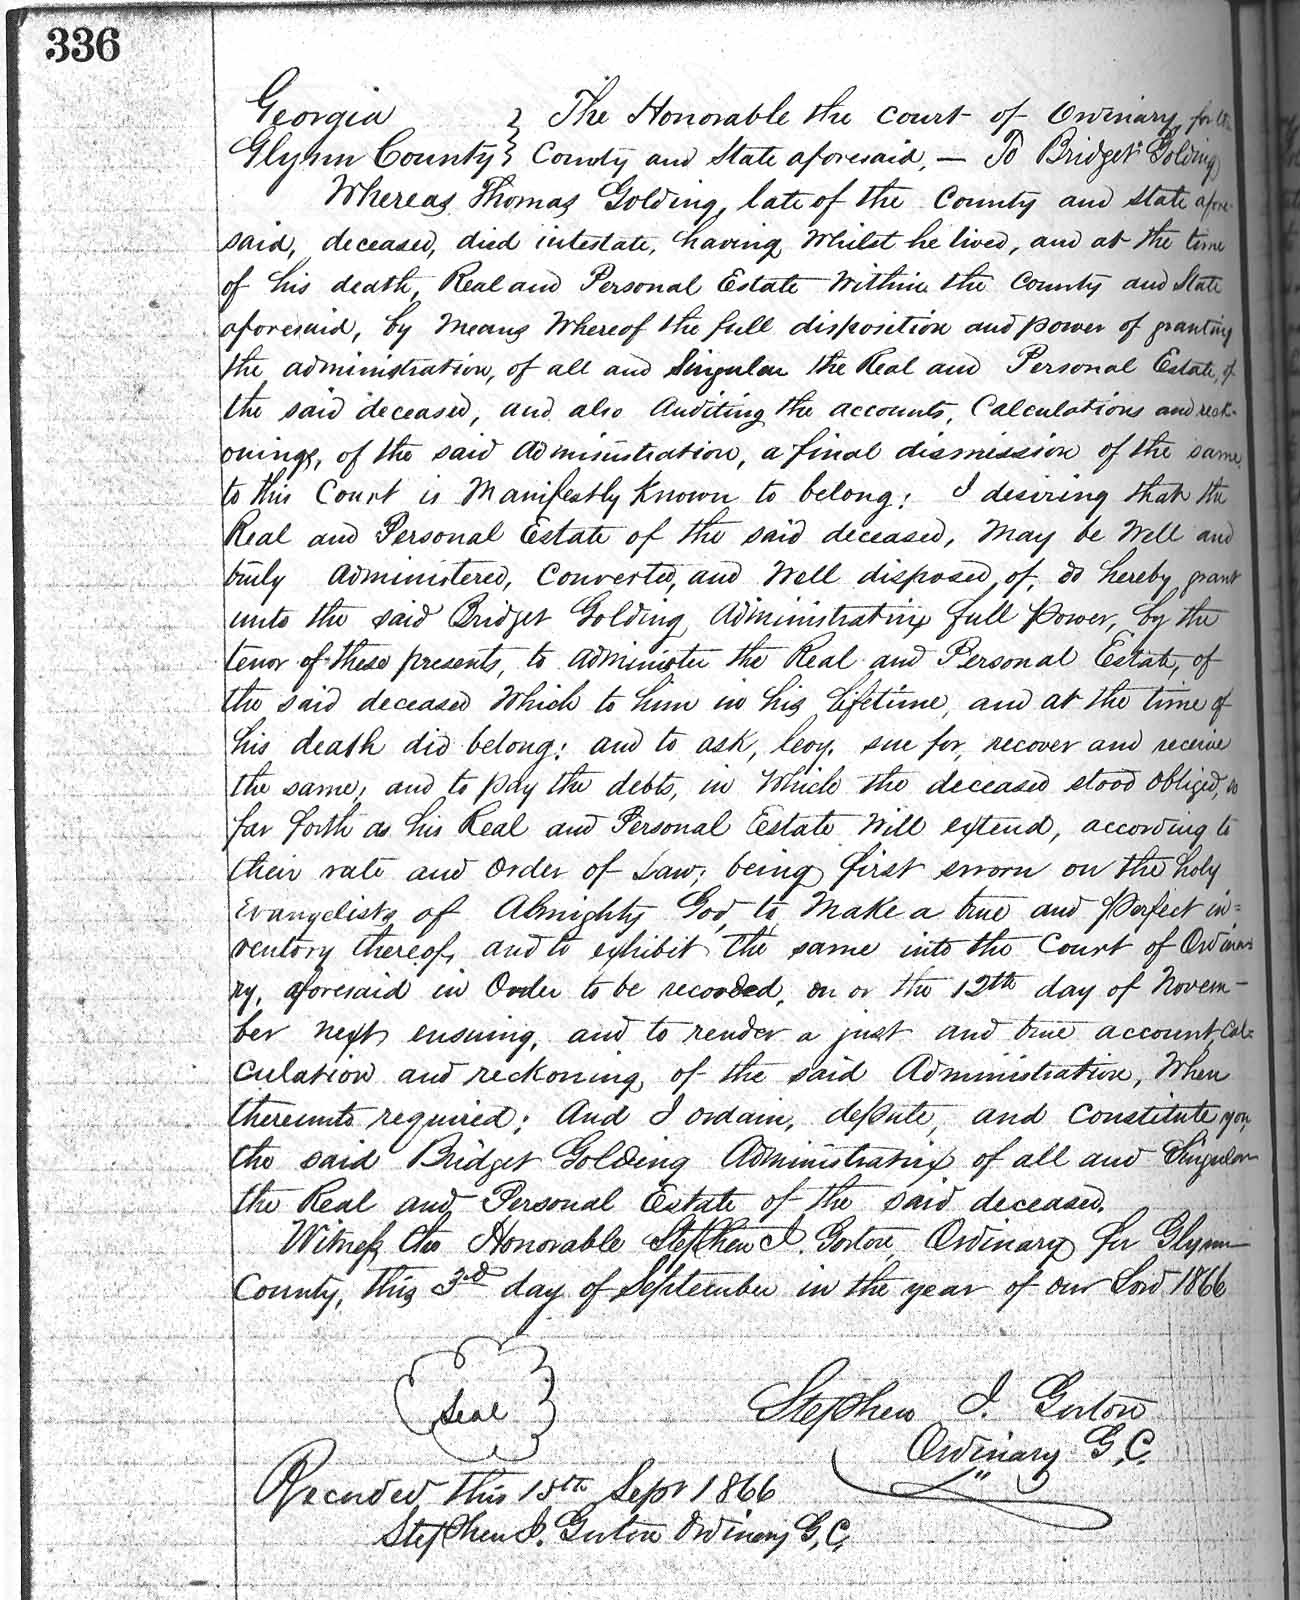 336
Georgia } The Honorable the Court of Ordinary for the
Glynn County } County and State aforesaid, — To Bridget Golding
Whereas Thomas Golding, late of the County and State afore-
said, deceased, died intestate, having Whilst he lived, and at the time
of his death, Real and Personal Estate Within the County and State
aforesaid, by Means Whereof the full disposition and power of granting
the administration, of all and Singular the Real and Personal Estate, of
the said deceased, and also Auditing the accounts, Calculations and reck-
onings, of the said Administration, a final dismission of the same,
to this Court is Manifestly Known to belong; I desiring that the
Real and Personal Estate of the said deceased, May be Well and
truly Administered, Converted, and Well disposed of, do hereby grant
unto the said Bridget Golding Administratrix full power, by the
tenor of these presents, to Administer the Real and Personal Estate, of
the said deceased Which to him in his lifetime, and at the time of
his death did belong; and to ask, levy, sue for, recover and receive
the same, and to pay the debts, in Which the deceased stood obliged, so
far forth as his Real and Personal Estate Will extend, according to
their rate and Order of Law; being first sworn on the holy
Evangelists of Almighty God, to Make a true and perfect in=
ventory thereof, and to exhibit the same into the Court of Ordina
ry, aforesaid in Order to be recorded, on or the 12th day of Novem-
ber next ensuing, and to render a just and true account, Cal=
culation and reckoning, of the said Administration, When
thereunto required; And I ordain, depute, and Constitute you,
the said Bridget Golding Administratrix of all and Singular
the Real and Personal Estate of the said deceased.
Witness the Honorable Stephen J. Gorton, Ordinary for Glynn
County, this 3rd day of September in the year of our Lord 1866
Seal
Stephen J. Gorton
Ordinary G.C.
Recorded this 15th Sept 1866
Stephen J. Gorton Ordinary G.C.